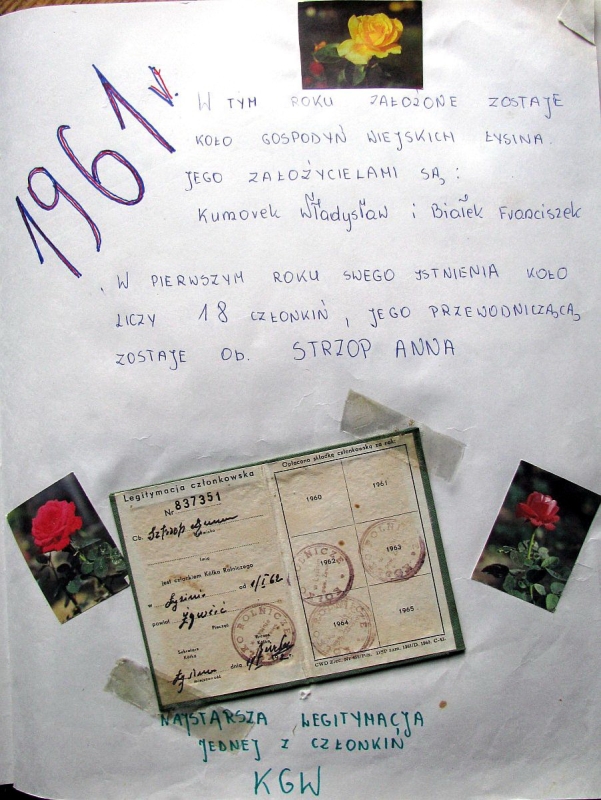 1961 r.
W TYM ROKU ZAŁOŻONE ZOSTAJE
KOŁO GOSPODYŃ WIEJSKICH ŁYSINA.
JEGO ZAŁOŻYCIELAMI SĄ:
Kumorek Władysław i Białek Franciszek
W PIERWSZYM ROKU SWEGO ISTNIENIA KOŁO
LICZY 18 CZŁONKIŃ, JEGO PRZEWODNICZĄCĄ
ZOSTAJE Ob. STRZOP ANNA
Legitymacja członkowska
Nr 837351
Ob.
Imię
jest członkiem Kółka Rolniczego
w od 1/I 62
powiat Żywiec
Pieczęć
Sekretarz Kółka
Prezes Kółka
dnia
Opłacono składkę członkowską za rok:
1960 1961
1962 1963
1964 1965
KÓŁKO ROLNICZE
NAJSTARSZA LEGITYMACJA
JEDNEJ Z CZŁONKIŃ
KGW